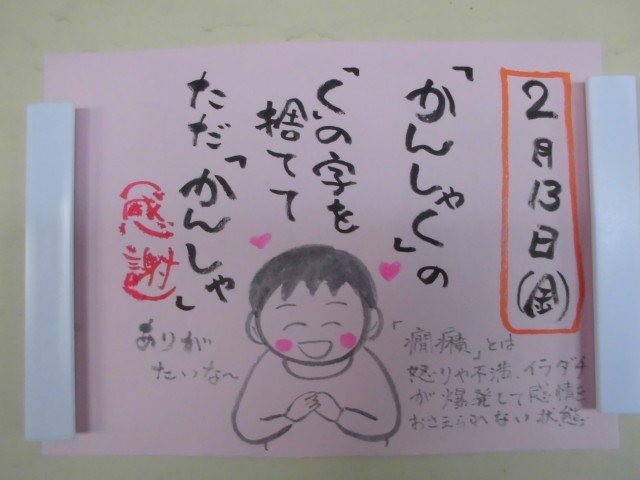 2月13日(金)
「かんしゃく」の
「く」の字を
捨てて
ただ「かんしゃ」
(感謝)
ありが
たいな〜
「癇癪」とは
怒りや不満、イラダチ
が爆発して感情を
おさえられない状態。